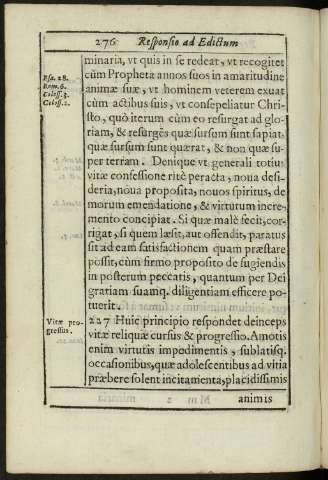 276 Responsio ad Edictum
minaria, vt quis in se redeat, vt recogitet
Psa. 28.
Rom. 6.
Coloss. 3.
Coloss. 2.
cũm Propheta annos suos in amaritudine
animæ suæ, vt hominem veterem exuat
cùm actibus suis, vt consepeliatur Chri-
sto, quò iterum cùm eo resurgat ad glo-
riam, & resurgẽs quæ sursum sunt sapiat,
quæ sursum sunt quærat, & non quæ su-
per terram. Denique vt generali totius
vitæ confessione ritè peracta, noua desi-
deria, noua proposita, nouos spiritus, de
morum emendatione, & virtutum incre-
mento concipiat. Si quæ malè fecit, cor-
rigat, si quem læsit, aut offendit, paratus
sit ad eam satisfactionem quam præstare
possit, cùm firmo proposito de fugiendis
in posterum peccatis, quantum per Dei
gratiam suamq. diligentiam efficere po-
tuerit.
Vitæ pro-
gressus.
227 Huic principio respondet deinceps
vitæ reliquæ cursus & progressio. Amotis
enim virtutis impedimentis, sublatisq.
occasionibus, quæ adolescentibus ad vitia
præbere solent incitamenta, placidissimis
animis